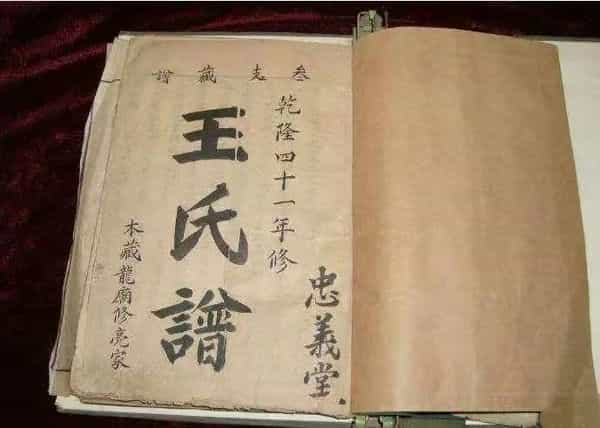 叁支藏譜
乾隆四十一年修
忠義堂
玉氏譜
木藏龍廟修亮家